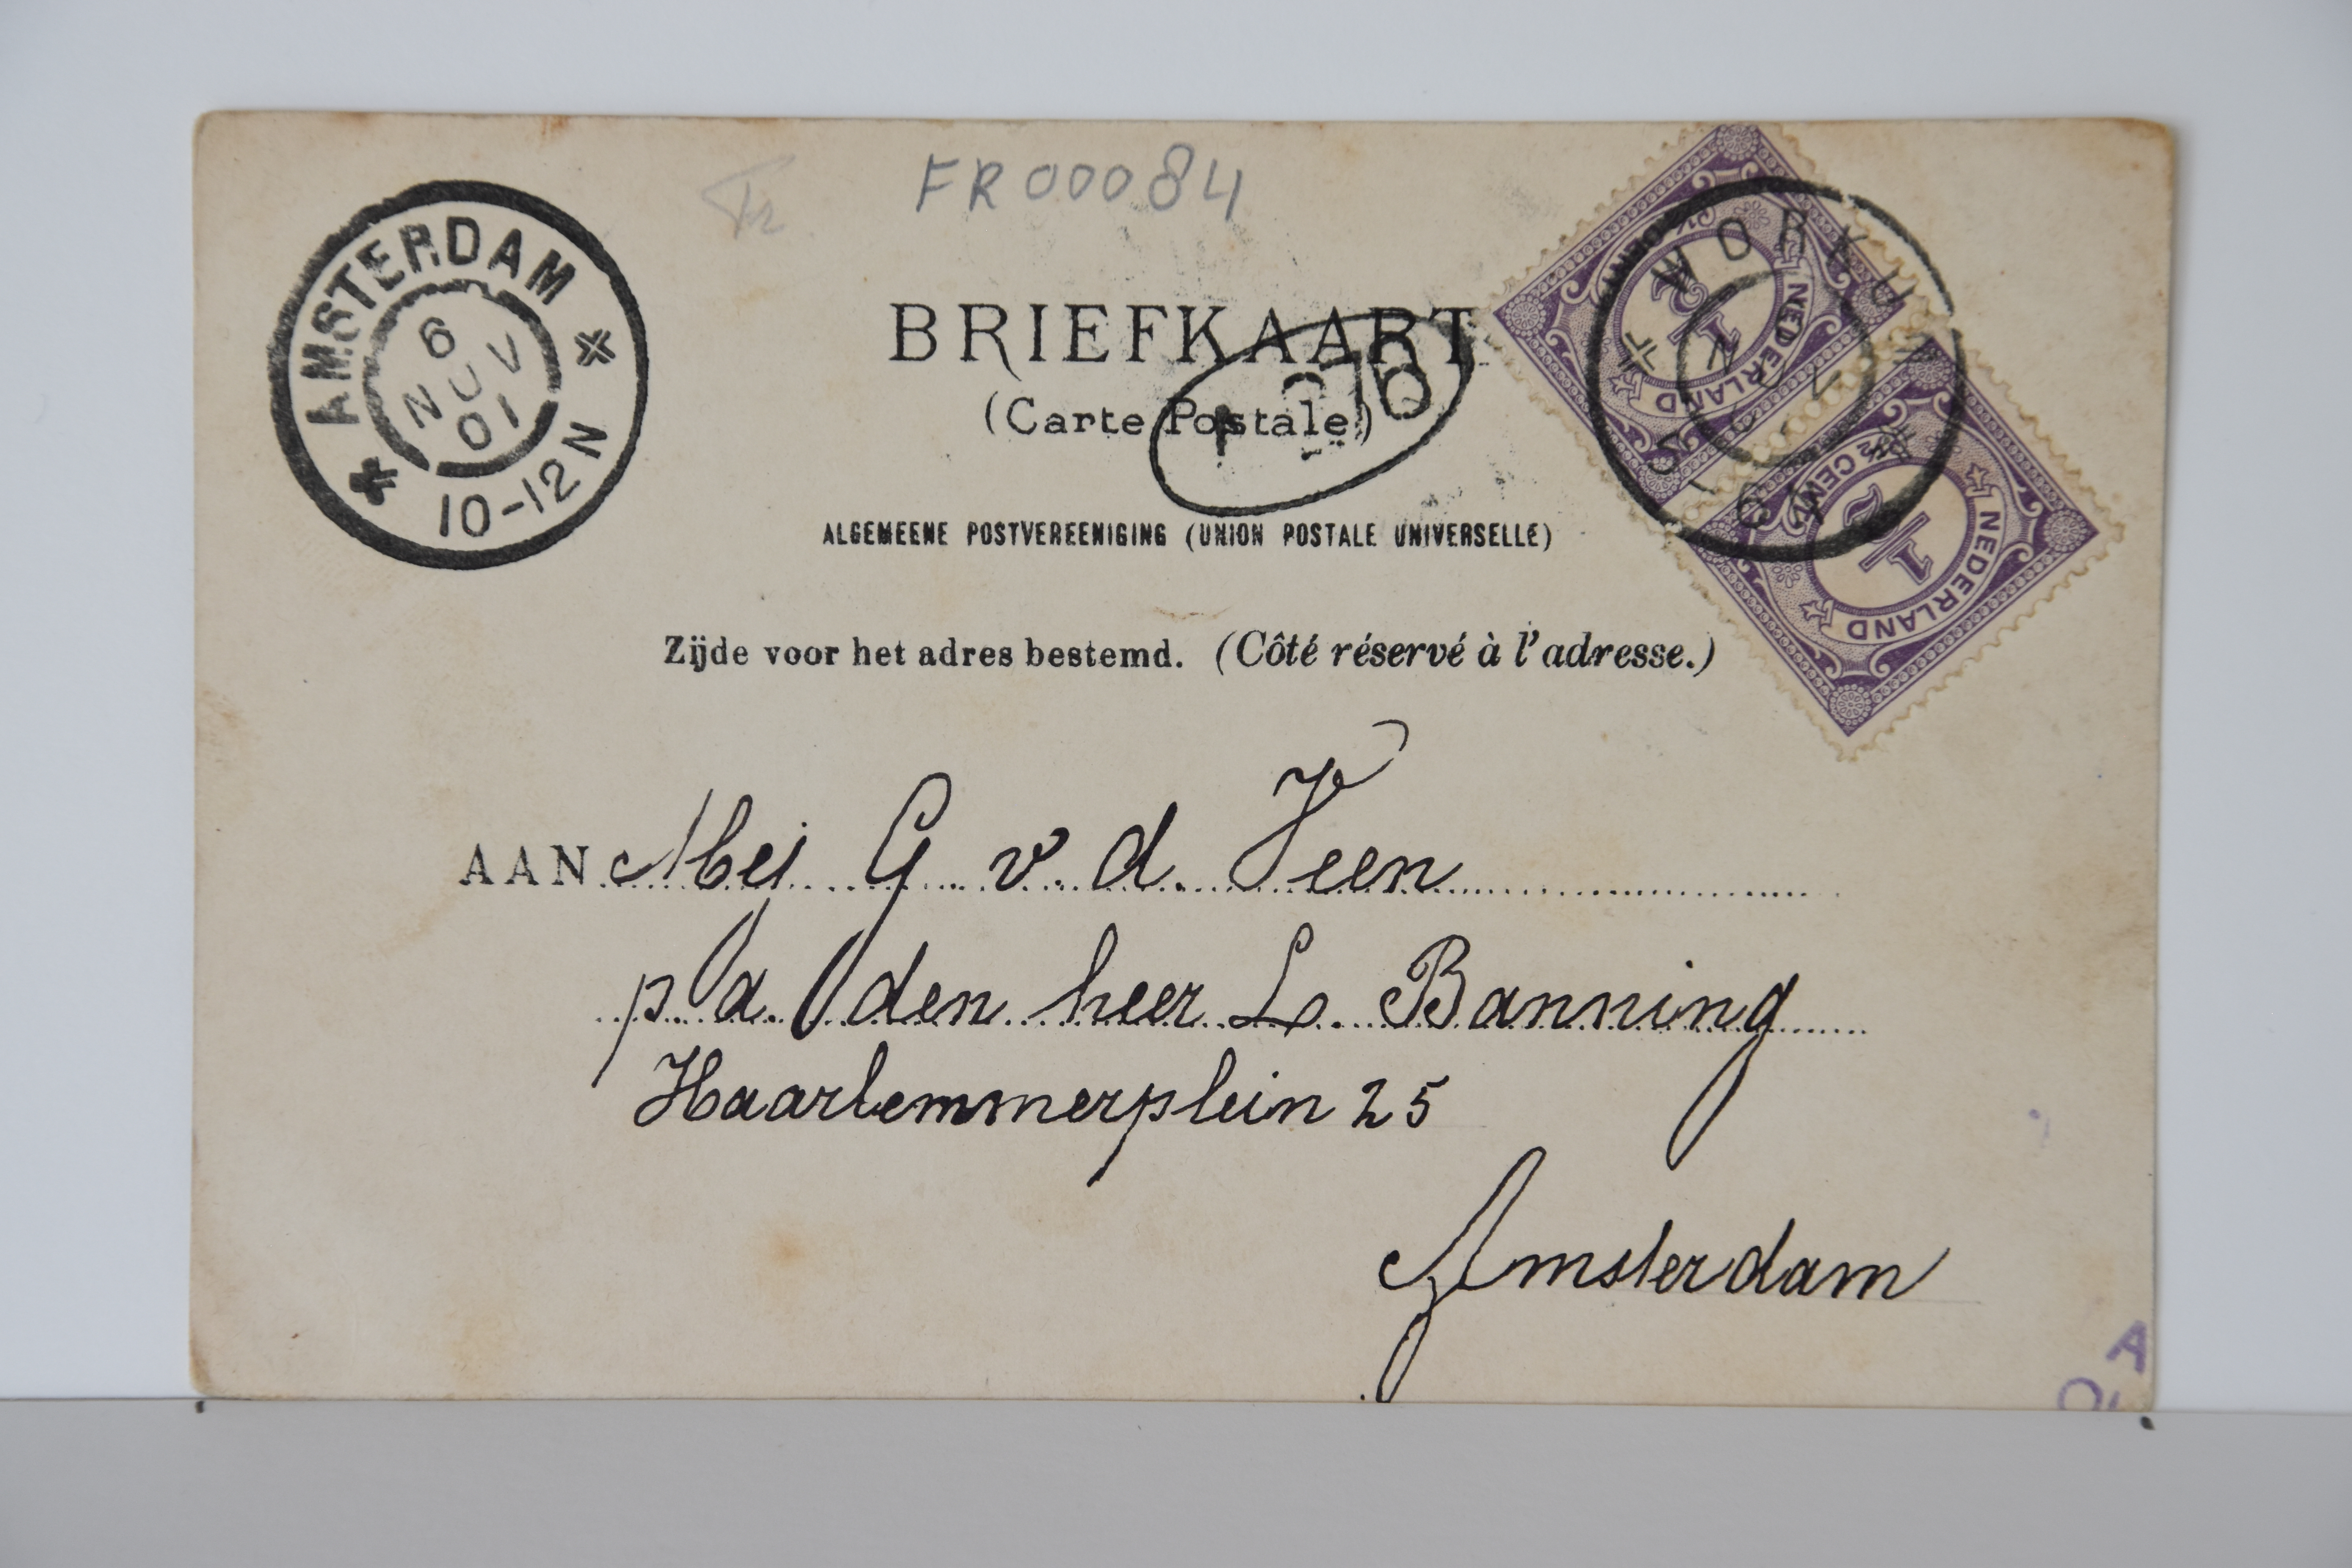 FR00084
AMSTERDAM
6
NOV
01
10-12N
WORKUM
NOV
01
½ CENT
NEDERLAND
1/2
½ CENT
NEDERLAND
1/2
BRIEFKAART
(Carte Postale)
ALGEMEENE POSTVEREENIGING (UNION POSTALE UNIVERSELLE)
Zijde voor het adres bestemd. (Côté réservé à l'adresse.)
AAN Mej G v d Veen
p/a/ den heer L. Banning
Haarlemmerplein 25
Amsterdam
A